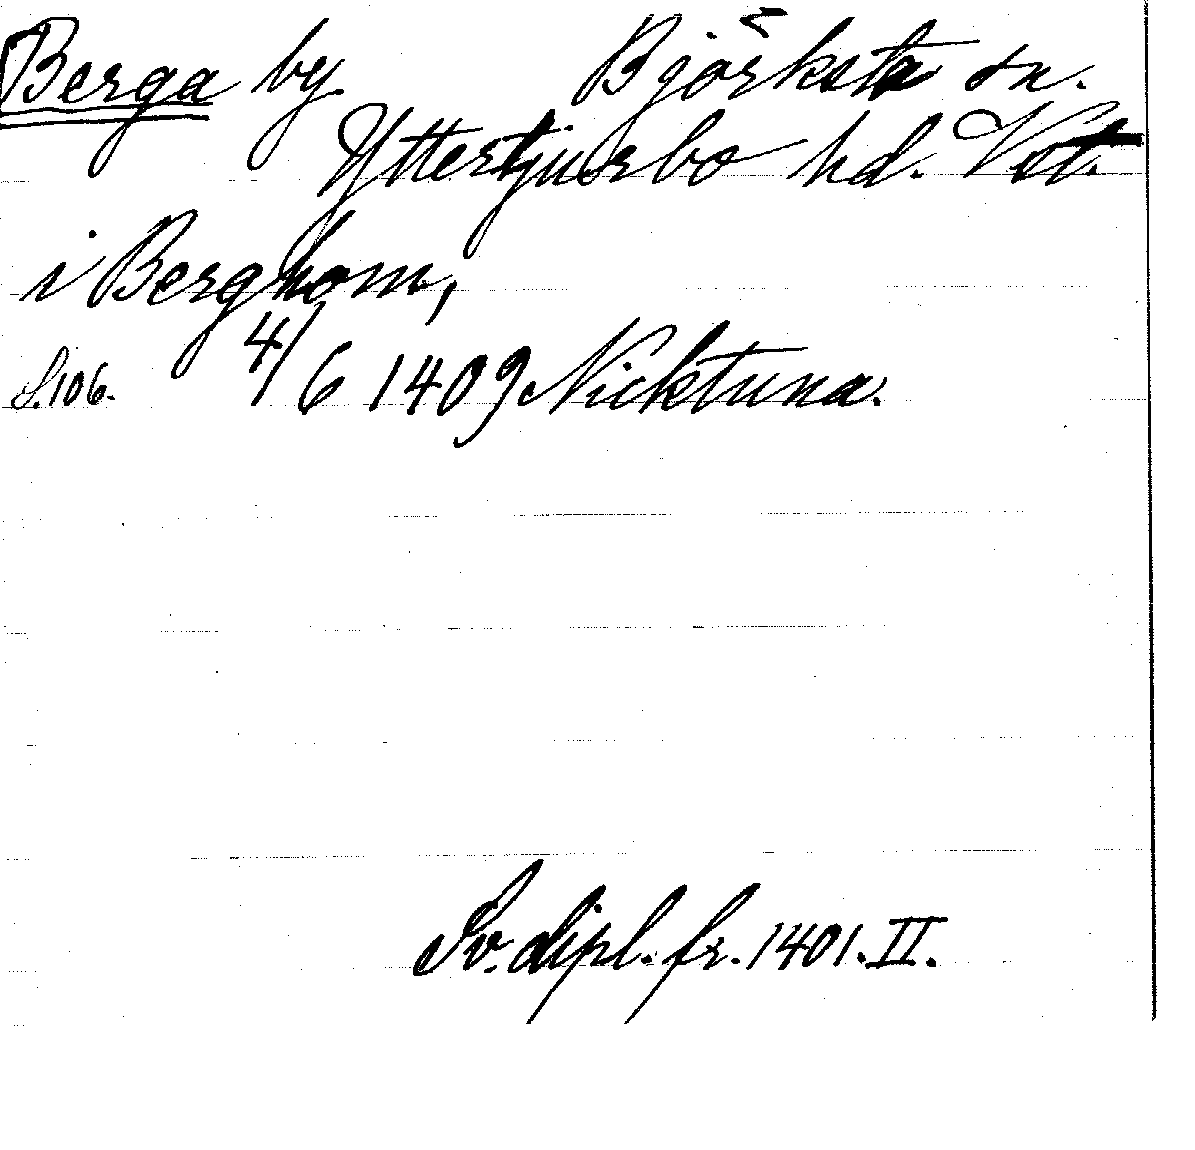 Berga by Björksta sn.
Yttertjurbo hd. Vst.
i Berghom,
s. 106. 4/6 1409 Nicktuna.
Sv. dipl. fr. 1401. II.